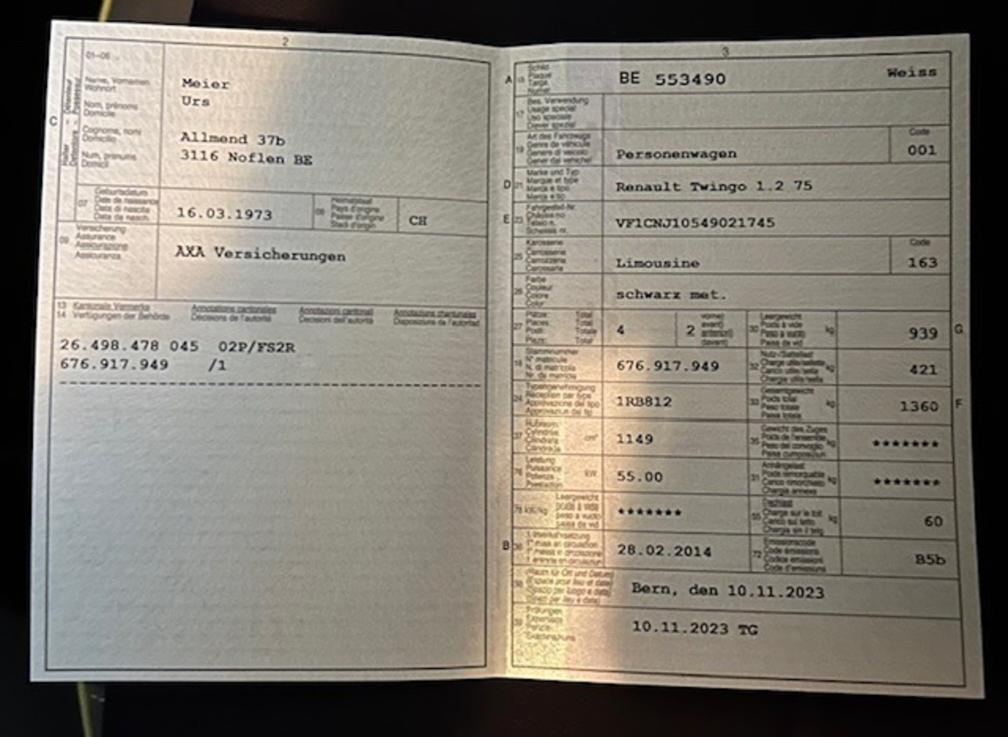 2
01-06
Name, Vornamen
Wohnort
Nom, prénoms
Domicile
Cognome, nomi
Domicilio
Num, prenums
Domicil
C
Meier
Urs
Allmend 37b
3116 Noflen BE
07
Geburtsdatum
Date de naissance
Data di nascita
Data da nasch.
16.03.1973
08
Heimatstaat
Pays d'origine
CH
09
Versicherung
Assurance
Assicurazione
Assicuranza
AXA Versicherungen
13 Kantonale Vermerke
14 Verfügungen der Behörde
Annotations cantonales
Décisions de l'autorité
Annotazioni cantonali
Decisioni dell'autorità
Annotaziuns chantunalas
Disposiziuns da l'autoritad
26.498.478 045 02P/FS2R
676.917.949 /1
3
A
Schild
Plaque
Targa
Numer
BE 553490 Weiss
17
Bes. Verwendung
Usage spécial
Uso speciale
Diever spezial
19
Art des Fahrzeugs
Genre de véhicule
Genere di veicolo
Gener dal vehichel
Personenwagen
Code
001
D 21
Marke und Typ
Marque et type
Marca e tipo
Marca e tip
Renault Twingo 1.2 75
E 23
Fahrgestell-Nr.
Châssis no
Telaio n.
Schassis nr.
VF1CNJ10549021745
25
Karosserie
Carrosserie
Carrozzeria
Carossaria
Limousine
Code
163
26
Farbe
Couleur
Colore
Color
schwarz met.
27
Plätze: Total
Places: Total
Posti: Totale
Plazs: Total
4
2
vorne)
avant)
anteriori)
davant)
30
Leergewicht
Poids à vide
Peso a vuoto
Paisa da vid
kg
939
G
18
Stammnummer
N° matricule
N. di matricola
Nr. da matricla
676.917.949
32
Nutz-/Sattellast
Charge utile/sellette
Carico utile/sella
Chargia utila/sella
kg
421
24
Typengenehmigung
Réception par type
Approvazione del tipo
Approvaziun dal tip
1RB812
33
Gesamtgewicht
Poids total
Peso totale
Paisa totala
kg
1360
F
37
Hubraum
Cylindrée
Cilindrata
cm³
1149
35
Gewicht des Zuges
Poids de l'ensemble
Peso del convoglio
Paisa cumposiziun
kg
*******
76
Leistung
Puissance
Potenza
Prestaziun
kW
55.00
31
Anhängelast
Poids remorquable
Carico rimorchiato
Chargia annexa
kg
*******
78 kW/kg
Leergewicht
poids à vide
peso a vuoto
paisa da vid
*******
55
Dachlast
Charge sur le toit
Carico sul tetto
Chargia sin il tetg
kg
60
B 36
1. Inverkehrsetzung
28.02.2014
72
Emissionscode
Code émissions
Codice emissioni
Code d'emissiuns
B5b
38
(Raum für Ort und Datum)
(Espace pour lieu et date)
(Spazio per luogo e data)
Bern, den 10.11.2023
39
Prüfungen
Expertises
10.11.2023 TG